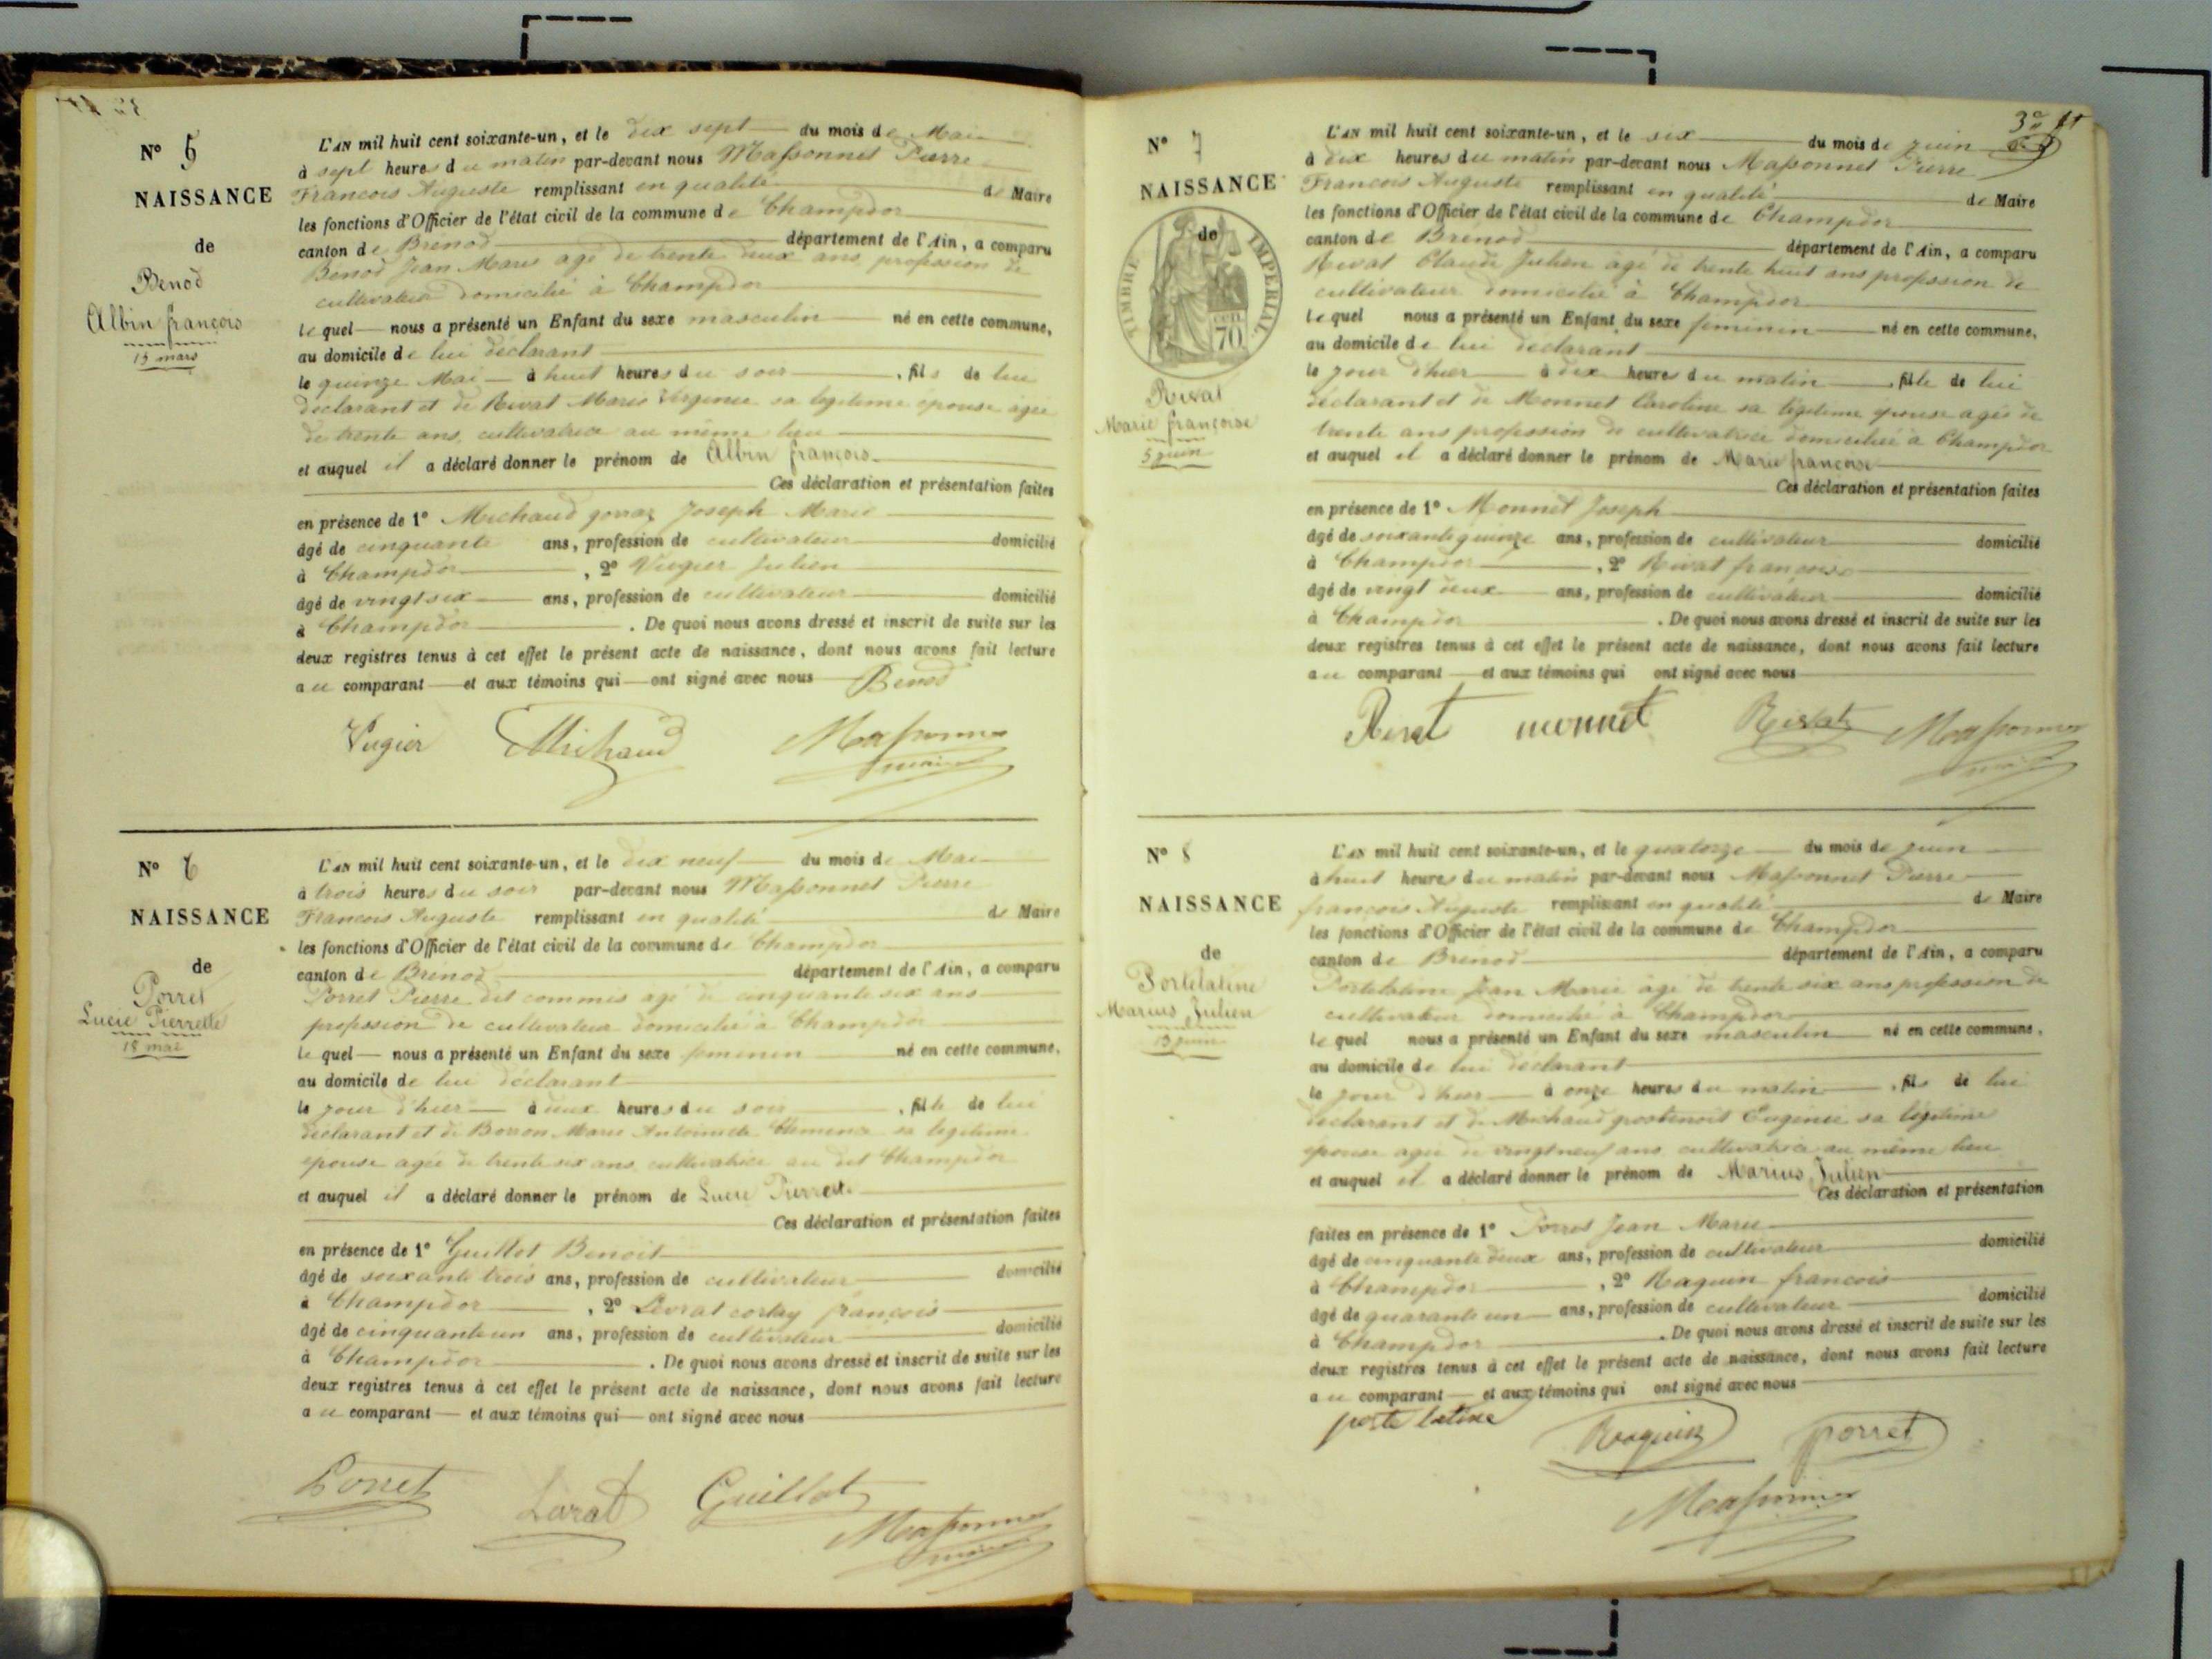 N° 5
NAISSANCE
de
Benod
Albin françois
15 mars
L'AN mil huit cent soixante-un, et le dix sept du mois de Mai
à sept heures du matin par-devant nous Massonnet Pierre
Francois Auguste remplissant en qualité de Maire
les fonctions d'Officier de l'état civil de la commune de Champdor
canton de Brénod département de l'Ain, a comparu
Benod Jean Marie agé de trente deux ans profession de
cultivateur domicilié à Champdor
lequel nous a présenté un Enfant du sexe masculin né en cette commune,
au domicile de lui déclarant
le quinze Mai à huit heures du soir, fils de lui
déclarant et de Rivat Marie Virginie sa légitime épouse agée
de trente ans, cultivatrice au même lieu
et auquel il a déclaré donner le prénom de Albin françois
Ces déclaration et présentation faites
en présence de 1° Michaud Joseph Marie
âgé de cinquante ans, profession de cultivateur domicilié
à Champdor, 2° Vugier Julien
âgé de vingt six ans, profession de cultivateur domicilié
à Champdor. De quoi nous avons dressé et inscrit de suite sur les
deux registres tenus à cet effet le présent acte de naissance, dont nous avons fait lecture
au comparant et aux témoins qui ont signé avec nous Benod
Vugier Michaud Massonnet
maire
N° 6
NAISSANCE
de
Porret
Lucie Pierrette
18 mai
L'AN mil huit cent soixante-un, et le dix neuf du mois de Mai
à trois heures du soir par-devant nous Massonnet Pierre
Francois Auguste remplissant en qualité de Maire
les fonctions d'Officier de l'état civil de la commune de Champdor
canton de Brenod département de l'Ain, a comparu
Porret Pierre dit commis agé de cinquante six ans
profession de cultivateur domicilié à Champdor
lequel nous a présenté un Enfant du sexe feminin né en cette commune,
au domicile de lui déclarant
le jour d'hier à deux heures du soir, fille de lui
déclarant et de Borron Marie Antoinette Clémence sa légitime
épouse agée de trente six ans cultivatrice au dit Champdor
et auquel il a déclaré donner le prénom de Lucie Pierrette
Ces déclaration et présentation faites
en présence de 1° Guillot Benoit
âgé de soixante trois ans, profession de cultivateur domicilié
à Champdor, 2° Levrat françois
âgé de cinquante un ans, profession de cultivateur domicilié
à Champdor. De quoi nous avons dressé et inscrit de suite sur les
deux registres tenus à cet effet le présent acte de naissance, dont nous avons fait lecture
au comparant et aux témoins qui ont signé avec nous
Porret Lavrat Guillot Massonnet
maire
3e
N° 7
NAISSANCE
de
TIMBRE IMPERIAL
70 cen
Rivat
Marie françoise
5 juin
L'AN mil huit cent soixante-un, et le six du mois de juin
à dix heures du matin par-devant nous Massonnet Pierre
Francois Auguste remplissant en qualité de Maire
les fonctions d'Officier de l'état civil de la commune de Champdor
canton de Brénod département de l'Ain, a comparu
Rivat Claude Julien agé de trente huit ans profession de
cultivateur domicilié à Champdor
lequel nous a présenté un Enfant du sexe féminin né en cette commune,
au domicile de lui déclarant
le jour d'hier à dix heures du matin, fille de lui
déclarant et de Monnet Caroline sa légitime épouse agée de
trente ans profession de cultivatrice domiciliée à Champdor
et auquel il a déclaré donner le prénom de Marie françoise
Ces déclaration et présentation faites
en présence de 1° Monnet Joseph
âgé de soixante quinze ans, profession de cultivateur domicilié
à Champdor, 2° Rivat françois
âgé de vingt deux ans, profession de cultivateur domicilié
à Champdor. De quoi nous avons dressé et inscrit de suite sur les
deux registres tenus à cet effet le présent acte de naissance, dont nous avons fait lecture
au comparant et aux témoins qui ont signé avec nous
Rivat monnet Rivat Massonnet
N° 8
NAISSANCE
de
Portelatine
Marius Julien
13 juin
L'AN mil huit cent soixante-un, et le quatorze du mois de juin
à huit heures du matin par-devant nous Massonnet Pierre
françois Auguste remplissant en qualité de Maire
les fonctions d'Officier de l'état civil de la commune de Champdor
canton de Brenod département de l'Ain, a comparu
Portelatine Jean Marie agé de trente six ans profession de
cultivateur domicilié à Champdor
lequel nous a présenté un Enfant du sexe masculin né en cette commune,
au domicile de lui déclarant
le jour d'hier à onze heures du matin, fils de lui
déclarant et de Michaud Eugénie sa légitime
épouse agée de vingt neuf ans cultivatrice au même lieu
et auquel il a déclaré donner le prénom de Marius Julien
Ces déclaration et présentation
faites en présence de 1° Porret Jean Marie
âgé de cinquante deux ans, profession de cultivateur domicilié
à Champdor, 2° Raquin francois
âgé de quarante un ans, profession de cultivateur domicilié
à Champdor. De quoi nous avons dressé et inscrit de suite sur les
deux registres tenus à cet effet le présent acte de naissance, dont nous avons fait lecture
au comparant et aux témoins qui ont signé avec nous
porte latine Raquin porret
Massonnet